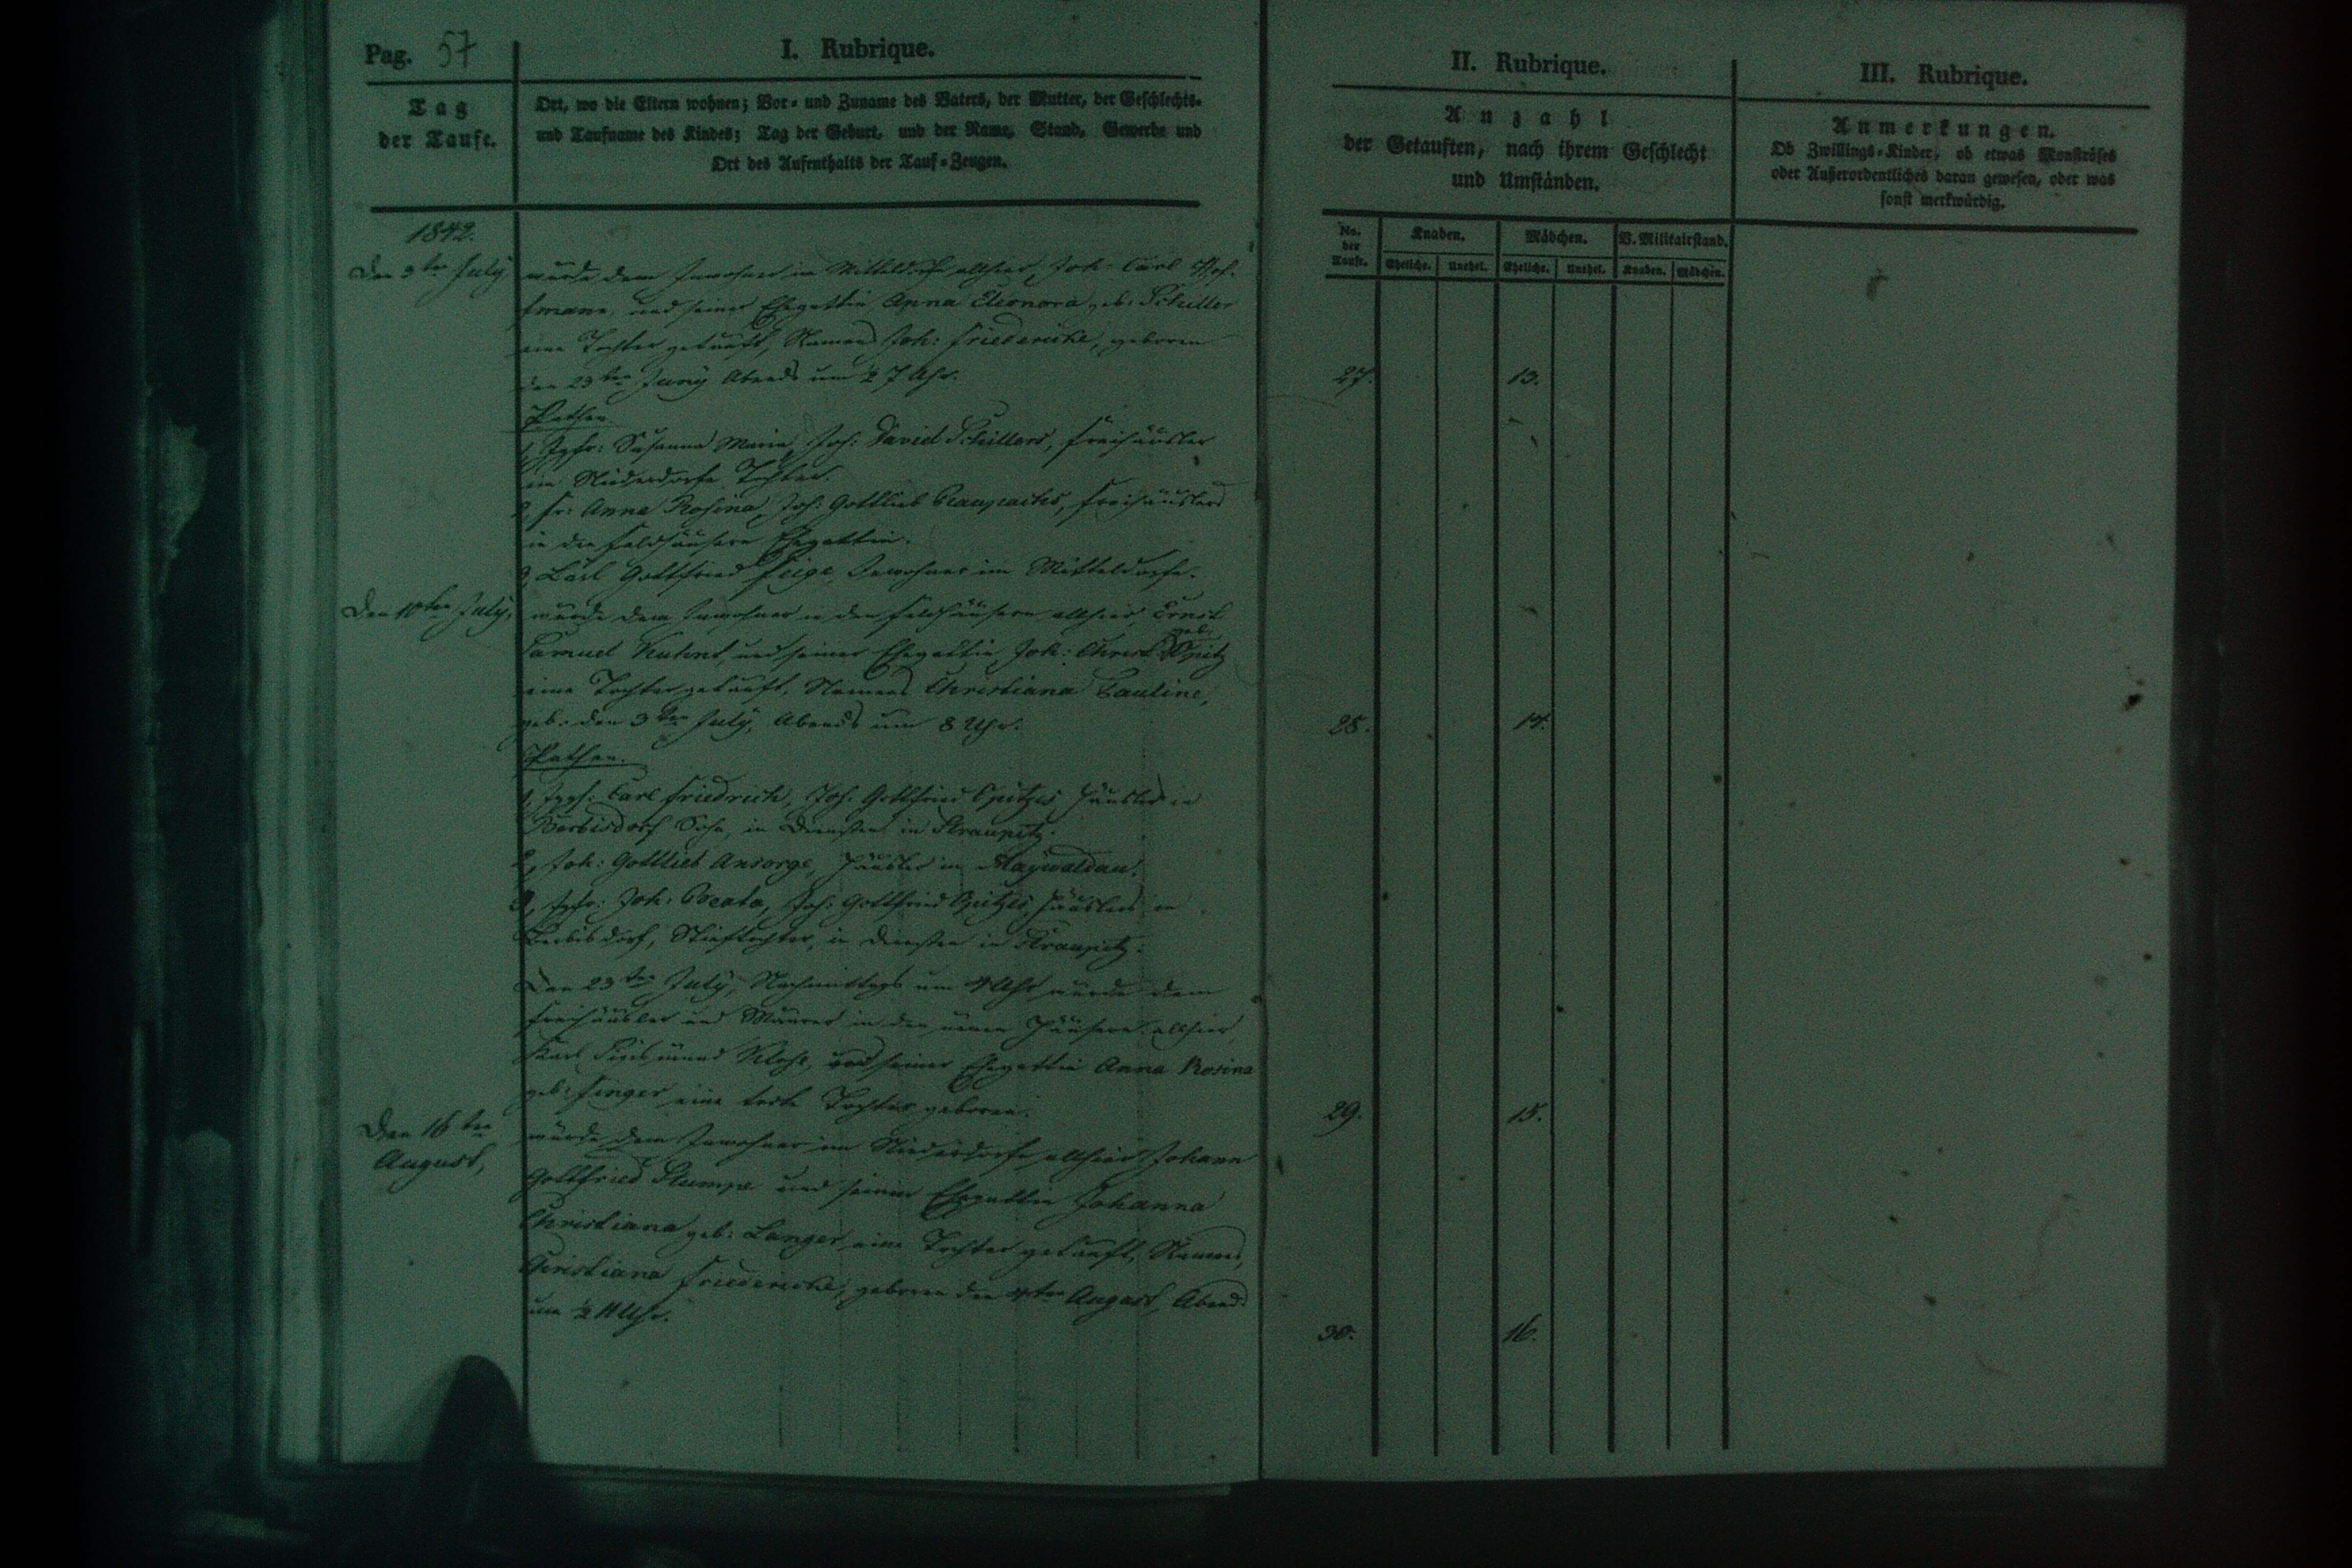 Pag. 57
I. Rubrique.
Tag
der Taufe.
Ort, wo die Eltern wohnen; Vor- und Zuname des Vaters, der Mutter, der Geschlechts-
und Taufname des Kindes; Tag der Geburt, und der Name, Stand, Gewerbe und
Ort des Aufenthalts der Tauf-Zeugen.
1842.
Den 3ten July
wurde dem Inwohner in Mitteldorfe allhier, Joh: Carl Hof-
fmann, und seiner Ehegattin Anna Eleonora geb: Schiller
eine Tochter getauft, Namens Joh: Friedericke, geboren
den 23ten Juny Abends um ½ 7 Uhr.
Pathen.
1, Jgfr: Susanna Maria, Joh: David Schillers, Freihäusler
im Niederdorfe Tochter.
2, Fr: Anna Rosina, Joh: Gottlieb Freihäuslers
in den Feldhäusern Ehegattin.
3, Carl Gottfried Feige, Inwohner im Mitteldorfe.
Den 10ten July,
wurde dem Inwohner in den Feldhäusern allhier, Ernst
Samuel und seiner Ehegattin, Joh: Christ: geb: Opitz
eine Tochter getauft, Namens Christiana Pauline,
geb: den 3ten July, Abends um 8 Uhr.
Pathen.
1, Jggs: Carl Friedrich, Joh: Gottfried Opitzes Häusler in
Berbisdorf Sohn, in Diensten in Straupitz.
2, Joh: Gottlieb Ansorge, Häusler in Maywaldau.
3, Jgfr: Joh: Beata, Joh: Gottfried Opitzes Häuslers in
Berbisdorf, Stieftochter, in Diensten in Straupitz.
Den 23ten July, Nachmittags um 4 Uhr wurde dem
Freihäusler und Maurer in den neuen Häusern allhier,
Karl und seiner Ehegattin Anna Rosina
geb: Finger eine todte Tochter geboren.
Den 16ten
August,
wurde dem Inwohner im Niederdorfe allhier Johann
Gottfried Stumpe und seiner Ehegattin Johanna
Christiana geb: Langer eine Tochter getauft, Namens,
Christiana Friedericke, geboren den 4ten August, Abends
um ½ 11 Uhr.
II. Rubrique.
Anzahl
der Getauften, nach ihrem Geschlecht
und Umständen.
No.
der
Taufe.
Knaben. Mädchen. V. Militairstand.
Eheliche. Unehel. Eheliche. Unehel. Knaben. Mädchen.
27. 13.
28. 14.
29. 15.
30. 16.
III. Rubrique.
Anmerkungen.
Ob Zwillings-Kinder, ob etwas Monströses
oder Außerordentliches daran gewesen, oder was
sonst merkwürdig.